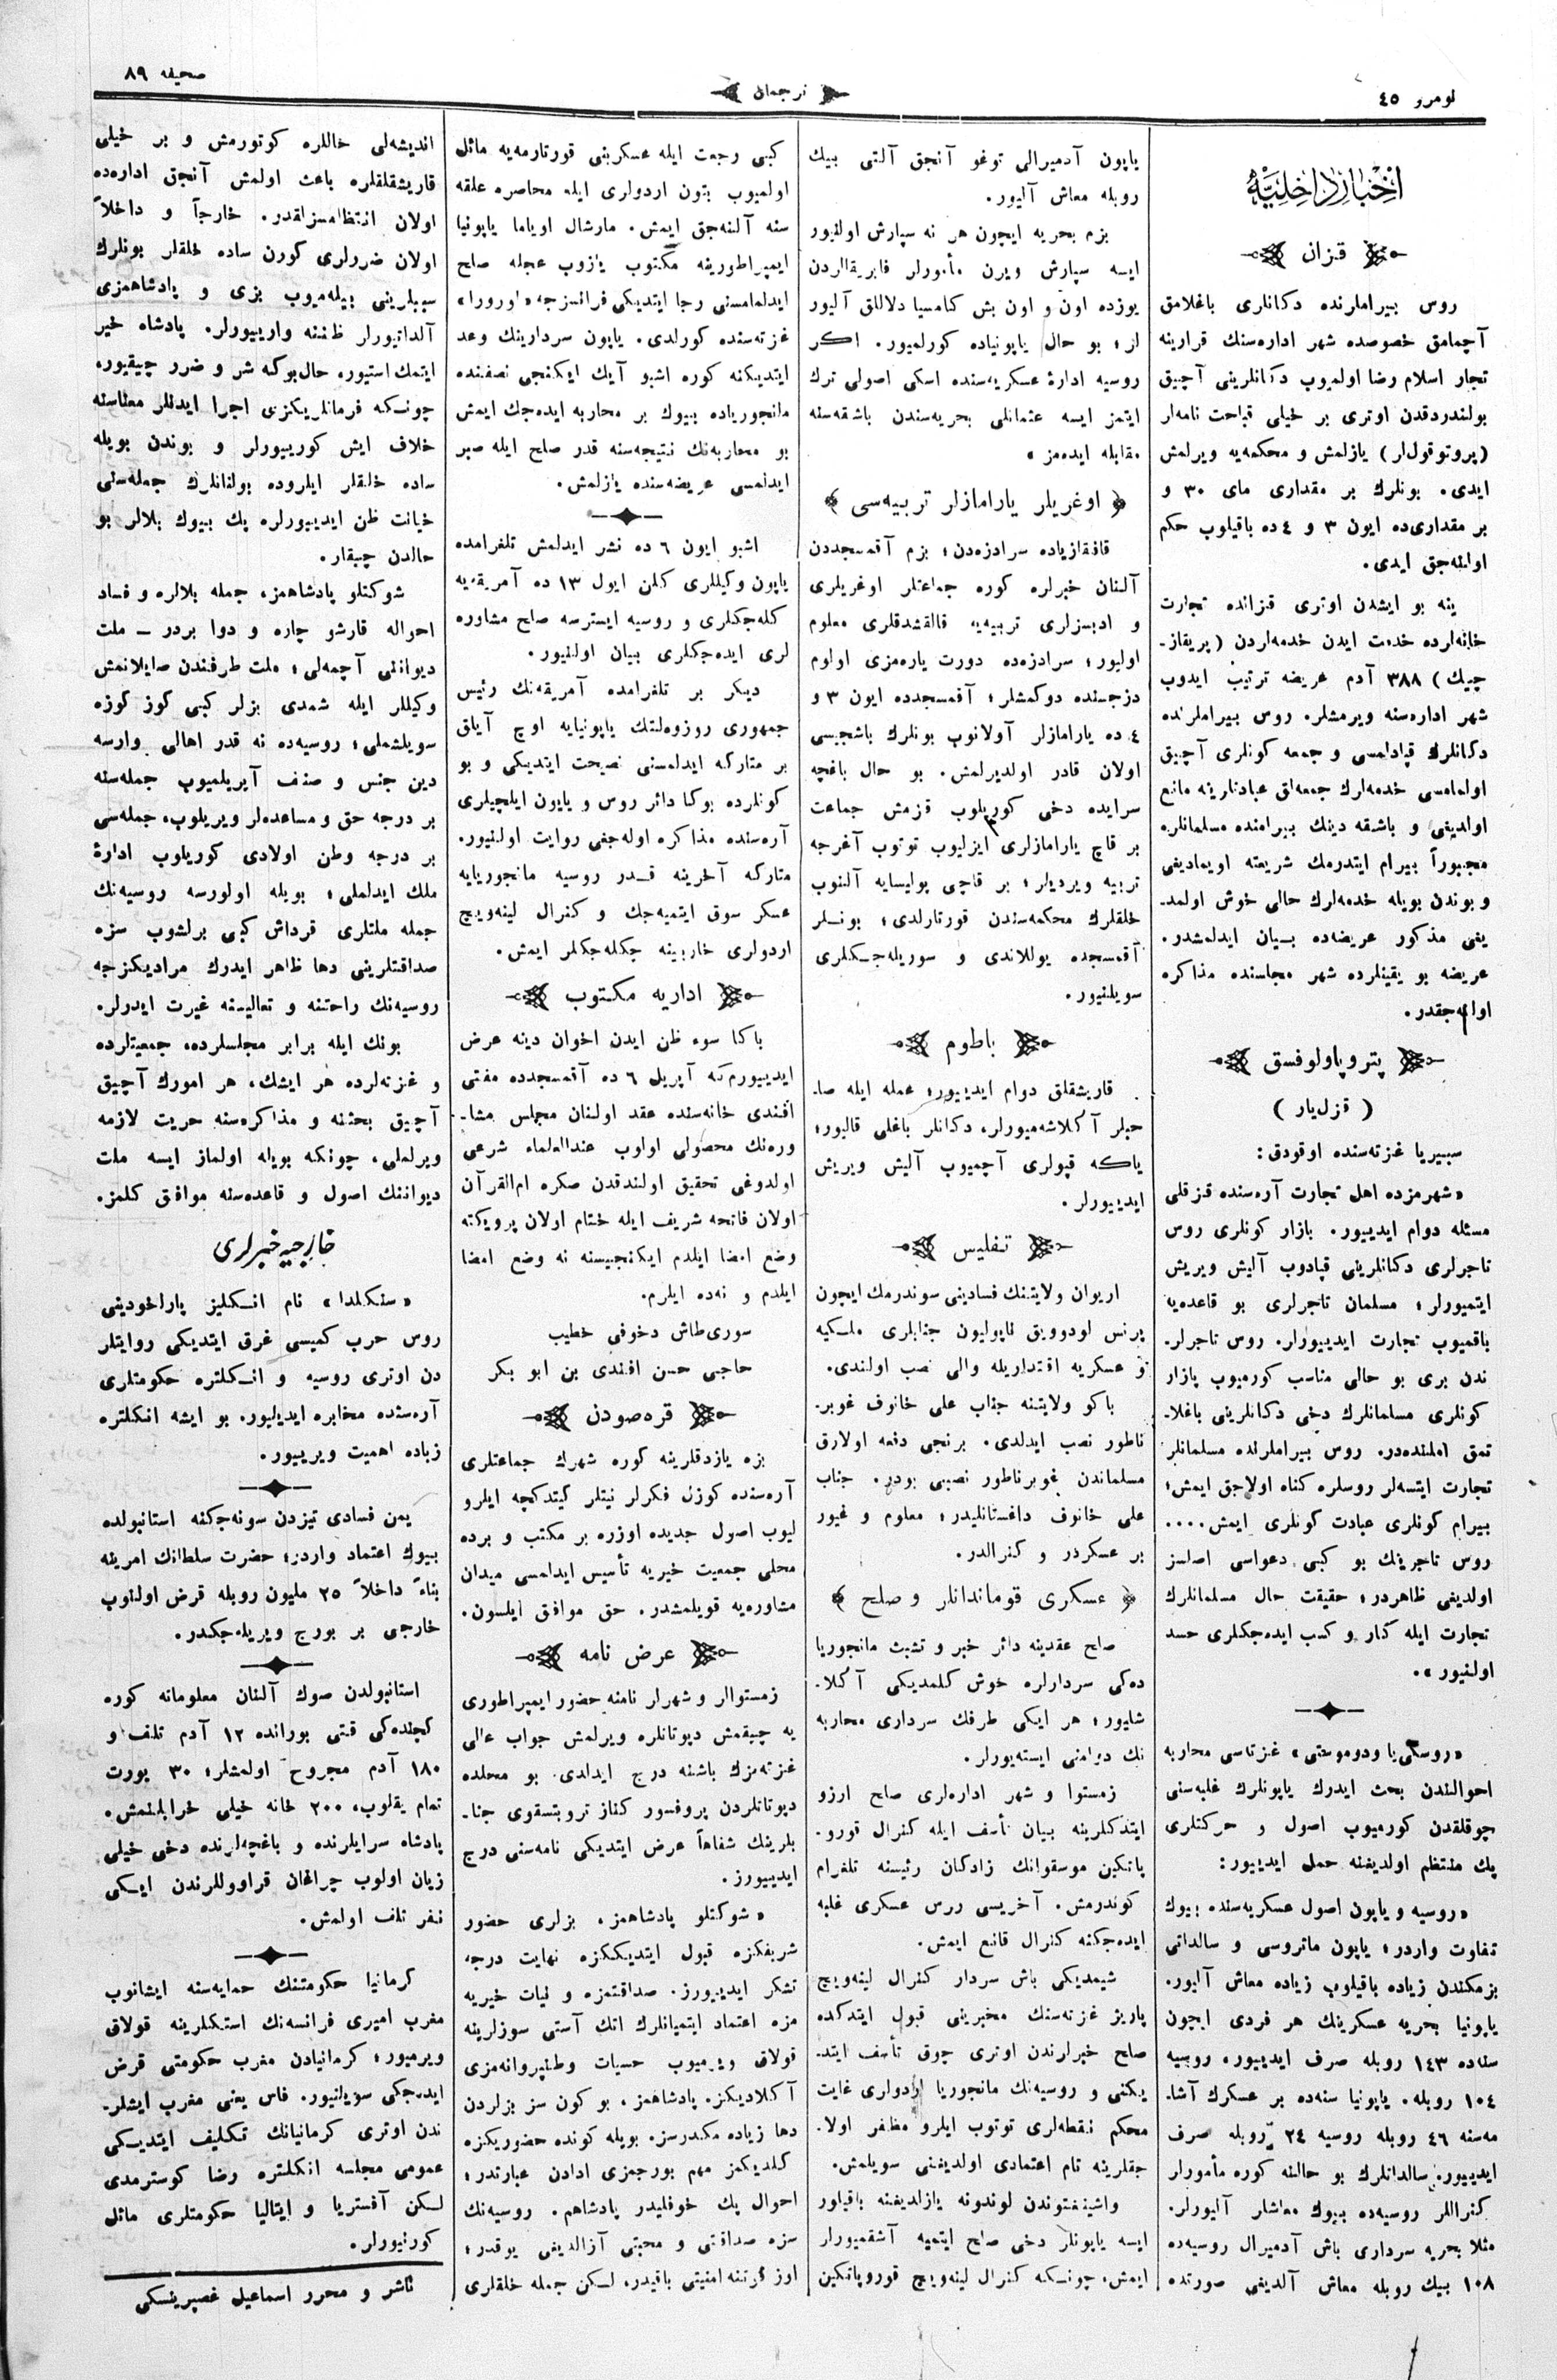 نومرو ٤٥
ترجمان
صحيفه ٨٩
اخبار داخليه
قزان
روس بيراملرنده دكانلری باغلامق
آچمامق خصوصده شهر اداره‌سنك قرارينه
تجار اسلام رضا اولميوب دكانلرينی آچيق
بولندردقدن اوتری بر خيلی قباحت نامه‌لر
(پروتوقول‌لر) يازلمش و محكمه‌يه ويرلمش
ايدی. بونلرك بر مقداری مای ٣٠ و
بر مقداری‌ده ايون ٣ و ٤ ده باقيلوب حكم
اولنه‌جق ايدی.
ينه بو ايشدن اوتری قزانده تجارت
خانه‌لرده خدمت ايدن خدمه‌لردن (پريقاز-
چيك) ٣٨٨ آدم عريضه ترتيب ايدوب
شهر اداره‌سنه ويرمشلر. روس بيراملرنده
دكانلرك قپادلمسی و جمعه كونلری آچيق
اولمامسی خدمه‌لرك جمعه‌لق عبادتلرينه مانع
اولديغی و باشقه دينك بيرامنده مسلمانلره
مجبوراً بيرام ايتدرمك شريعته اويماديغی
و بوندن بويله خدمه‌لرك حالی خوش اولمد-
يغی مذكور عريضه‌ده بيان ايدلمشدر.
عريضه بو يقينلرده شهر مجلسنده مذاكره
اولنه‌جقدر.
پتروپاولوفسق
(قزل‌يار)
سبيريا غزته‌سنده اوقودق:
«شهرمزده اهل تجارت آره‌سنده قزقلی
مسئله دوام ايدييور. بازار كونلری روس
تاجرلری دكانلرينی قپادوب آليش ويريش
ايتميورلر؛ مسلمان تاجرلری بو قاعده‌يه
باقميوب تجارت ايدييورلر. روس تاجرلر-
ندن بری بو حالی مناسب كورميوب بازار
كونلری مسلمانلرك دخی دكانلرينی باغلا-
تمق املنده‌در. روس بيراملرنده مسلمانلر
تجارت ايتسه‌لر روسلره كناه اولاجق ايمش؛
بيرام كونلری عبادت كونلری ايمش....
روس تاجرينك بو كبی دعواسی اصلسز
اولديغی ظاهردر؛ حقيقت حال مسلمانلرك
تجارت ايله كار و كسب ايده‌جكلری حسد
اولنيور».
«روسكی يا ودوموستی» غزتاسی محاربه
احوالندن بحث ايدرك ياپونلرك غلبه‌سنی
چوقلقدن كورميوب اصول و حركتلری
پك منتظم اولديغنه حمل ايدييور:
«روسيه و ياپون اصول عسكريه‌سنده بيوك
تفاوت واردر؛ ياپون ماتروسی و سالداتی
بزمكندن زياده باقيلوب زياده معاش آليور.
ياپونيا بحريه عسكرينك هر فردی ايچون
سنه‌ده ١٤٣ روبله صرف ايدييور، روسيه
١٠٤ روبله. ياپونيا سنه‌ده بر عسكرك آشا-
مه‌سنه ٤٦ روبله روسيه ٢٤ روبله صرف
ايدييور. سالداتلرك بو حالنه كوره مأمورلر
كنراللر روسيه‌ده بيوك معاشلر آليورلر.
مثلا بحريه سرداری باش آدميرال روسيه‌ده
١٠٨ بيك روبله معاش آلديغی صورتده
ياپون آدميرالی توغو آنجق آلتی بيك
روبله معاش آليور.
بزم بحريه ايچون هر نه سپارش اولنيور
ايسه سپارش ويرن مأمورلر فابريقالردن
يوزده اون و اون بش كامسيا دلاللق آليور
لر؛ بو حال ياپونياده كورلميور. اكر
روسيه ادارۀ عسكريه‌سنده اسكی اصولی ترك
ايتمز ايسه عثمانلی بحريه‌سندن باشقه‌سنه
مقابله ايده‌مز»
﴿ اوغريلر يارامازلر تربيه‌سی ﴾
قافقازياده سرادزه‌دن؛ بزم آقمسجددن
آلنان خبرلره كوره جماعتلر اوغريلری
و ادبسزلری تربيه‌يه قالقشدقلری معلوم
اوليور؛ سرادزه‌ده دورت ياره‌مزی اولوم
درجه‌سنده دوكمشلر؛ آقمسجدده ايون ٣ و
٤ ده يارامازلر آولانوب بونلرك باشجيسی
اولان قادر اولديرلمش. بو حال باغچه
سرايده دخی كوريلوب قزمش جماعت
بر قاچ يارامازلری ايزليوب توتوب آغرجه
تربيه ويرديلر؛ بر قاچی پوليسايه آلنوب
خلقلرك محكمه‌سندن قورتارلدی؛ بونلر
آقمسجده يوللاندی و سوريله‌جكلری
سويلنيور.
باطوم
قاريشقلق دوام ايدييور؛ عمله ايله صا-
حبلر آكلاشه‌ميورلر، دكانلر باغلی قاليور؛
ياكه قپولری آچميوب آليش ويريش
ايدييورلر.
تفليس
اريوان ولايتنك فسادينی سوندرمك ايچون
پرنس لودوويق ناپوليون جنابلری ملكيه
و عسكريه اقتداريله والی نصب اولندی.
باكو ولايتنه جناب علی خانوف غوبر-
ناطور نصب ايدلدی. برنجی دفعه اولارق
مسلماندن غوبرناطور نصبی بودر. جناب
علی خانوف داغستانليدر؛ معلوم و غيور
بر عسكردر و كنرالدر.
﴿ عسكری قوماندانلر و صلح ﴾
صلح عقدينه دائر خبر و تشبث مانجوريا
ده‌كی سردارلره خوش كلمديكی آكلا-
شليور؛ هر ايكی طرفك سرداری محاربه
نك دوامنی ايسته‌يورلر.
زمستوا و شهر اداره‌لری صلح ارزو
ايتدكلرينه بيان تأسف ايله كنرال قورو-
پاتكين موسقوانك زادكان رئيسنه تلغرام
كوندرمش. آخريسی روس عسكری غلبه
ايده‌جكنه كنرال قانع ايمش.
شيمديكی باش سردار كنرال لينه‌ويچ
پاريژ غزته‌سنك مخبرينی قبول ايتدكده
صلح خبرلرندن اوتری چوق تأسف ايتد-
يكنی و روسيه‌نك مانجوريا اردولری غايت
محكم نقطه‌لری توتوب ايلرو مظفر اولا-
جقلرينه تام اعتمادی اولديغنی سويلمش.
واشينغتوندن لوندونه يازلديغنه باقيلور
ايسه ياپونلر دخی صلح ايتميه آشقميورلر
ايمش، چونكه كنرال لينه‌ويچ قوروپاتكين
كبی رجعت ايله عسكرينی قورتارمه‌يه مائل
اولميوب بتون اردولری ايله محاصره علقه
سنه آلنه‌جق ايمش. مارشال اوياما ياپونيا
ايمپراطورينه مكتوب يازوب عجله صلح
ايدلمامسنی رجا ايتديكی فرانسزجه «اورورا»
غزته‌سنده كورلدی. ياپون سردارينك وعد
ايتديكنه كوره اشبو آيك ايكنجی نصفنده
مانجورياده بيوك بر محاربه ايده‌جك ايمش
بو محاربه‌نك نتيجه‌سنه قدر صلح ايله صبر
ايدلمسی عريضه‌سنده يازلمش.
اشبو ايون ٦ ده نشر ايدلمش تلغرامده
ياپون وكيللری كلن ايول ١٣ ده آمريقه‌يه
كله‌جكلری و روسيه ايسترسه صلح مشاوره
لری ايده‌جكلری بيان اولنيور.
ديكر بر تلغرامده آمريقه‌نك رئيس
جمهوری روزوه‌لتك ياپونيايه اوچ آيلق
بر متاركه ايدلمسنی نصيحت ايتديكی و بو
كونلرده بوكا دائر روس و ياپون ايلچيلری
آره‌سنده مذاكره اوله‌جغی روايت اولنيور.
متاركه آخرينه قدر روسيه مانجوريايه
عسكر سوق ايتميه‌جك و كنرال لينه‌ويچ
اردولری خاربينه چكله‌جكلر ايمش.
اداريه مكتوب
باكا سوء ظن ايدن اخوان دينه عرض
ايدييورم كه آپريل ٦ ده آقمسجدده مفتی
افندی خانه‌سنده عقد اولنان مجلس مشا-
وره‌نك محصولی اولوب عندالعلماء شرعی
اولدوغی تحقيق اولندقدن صكره ام‌القرآن
اولان فاتحه شريف ايله ختام اولان پرويكته
وضع امضا ايلدم ايكنجيسنه نه وضع امضا
ايلدم و نه‌ده ايلرم.
سوری‌طاش دخوفی خطيب
حاجی حسن افندی بن ابو بكر
قره‌صودن
بزه يازدقلرينه كوره شهرك جماعتلری
آره‌سنده كوزل فكرلر نيتلر كيتدكچه ايلرو
ليوب اصول جديده اوزره بر مكتب و برده
محلی جمعيت خيريه تأسيس ايدلمسی ميدان
مشاوره‌يه قويلمشدر. حق موافق ايلسون.
عرض نامه
زمستوالر و شهرلر نامنه حضور ايمپراطوری
يه چيقمش دپوتاتلره ويرلمش جواب عالی
غزته‌مزك باشنه درج ايدلدی. بو محلده
دپوتاتلردن پروفسور كناز تروبتسقوی جنا-
بلرينك شفاهاً عرض ايتديكی نامه‌سنی درج
ايدييورز.
«شوكتلو پادشاهمز، بزلری حضور
شريفكزه قبول ايتديككزه نهايت درجه
تشكر ايدييورز. صداقتمزه و نيات خيريه
مزه اعتماد ايتميانلرك اتك آستی سوزلرينه
قولاق ويرميوب حسيات وطنپروانه‌مزی
آكلاديكز. پادشاهمز، بو كون سز بزلردن
دها زياده مكدرسز. بويله كونده حضوريكزه
كلديكمز مهم بورجمزی ادادن عبارتدر؛
احوال پك خوفليدر پادشاهم. روسيه‌نك
سزه صداقتی و محبتی آزالديغی يوقدر؛
اوز كرتنه امنيتی باقيدر، لكن جمله خلقلری
انديشه‌لی خاللره كوتورمش و بر خيلی
قاريشقلقلره باعث اولمش آنجق اداره‌ده
اولان انتظامسزلقدر. خارجاً و داخلاً
اولان ضررلری كورن ساده خلقلر بونلرك
سببلرينی بيله‌ميوب بزی و پادشاهمزی
آلداتيورلر ظننه وارييورلر. پادشاه خير
ايتمك استيور، حال‌بوكه شر و ضرر چيقيور،
چونكه فرمانلريكزی اجرا ايدنلر معناسنه
خلاف ايش كورييورلر و بوندن بويله
ساده خلقلر ايلروده بولنانلرك جمله‌سنی
خيانت ظن ايدييورلره پك بيوك بلالر بو
حالدن چيقار.
شوكتلو پادشاهمز، جمله بلالره و فساد
احواله قارشو چاره و دوا بردر ــ ملت
ديوانی آچمه‌لی؛ ملت طرفندن صايلانمش
وكيللر ايله شمدی بزلر كبی كوز كوزه
سويلشملی؛ روسيه‌ده نه قدر اهالی وارسه
دين جنس و صنف آيريلميوب جمله‌سنه
بر درجه حق و مساعده‌لر ويريلوب، جمله‌سی
بر درجه وطن اولادی كوريلوب ادارۀ
ملك ايدلملی؛ بويله اولورسه روسيه‌نك
جمله ملتلری قرداش كبی برلشوب سزه
صداقتلرينی دها ظاهر ايدرك مراديكزجه
روسيه‌نك راحتنه و تعاليسنه غيرت ايدرلر.
بونك ايله برابر مجلسلرده، جمعيتلرده
و غزته‌لرده هر ايشك، هر امورك آچيق
آچيق بحثنه و مذاكره‌سنه حريت لازمه
ويرلملی، چونكه بويله اولماز ايسه ملت
ديواننك اصول و قاعده‌سنه موافق كلمز.
خارجيه خبرلری
«سنكلدا» نام انكليز پاراخودينی
روس حرب كميسی غرق ايتديكی روايتلر
دن اوتری روسيه و انكلتره حكومتلری
آره‌سنده مخابره ايديليور. بو ايشه انكلتره
زياده اهميت ويرييور.
يمن فسادی تيزدن سونه‌جكنه استانبولده
بيوك اعتماد واردر؛ حضرت سلطانك امرينه
بناءً داخلاً ٢٥ مليون روبله قرض اولنوب
خارجی بر بورج ويريله‌جكدر.
استانبولدن صوك آلنان معلوماته كوره
كچنده‌كی قتی بورانده ١٢ آدم تلف و
١٨٠ آدم مجروح اولمشلر؛ ٣٠ يورت
تمام يقلوب، ٢٠٠ خانه خيلی خرابلنمش.
پادشاه سرايلرنده و باغچه‌لرنده دخی خيلی
زيان اولوب چراغان قراووللرندن ايكی
نفر تلف اولمش.
كرمانيا حكومتنك حمايه‌سنه ايشانوب
مغرب اميری فرانسه‌نك استكلرينه قولاق
ويرميور؛ كرمانيادن مغرب حكومتی قرض
ايده‌جكی سويلنيور. فاس يعنی مغرب ايشلر-
ندن اوتری كرمانيانك تكليف ايتديكی
عمومی مجلسه انكلتره رضا كوسترمدی
لكن آفستريا و ايتاليا حكومتلری مائل
كورنيورلر.
ناشر و محرر اسماعيل غصپرينسكی